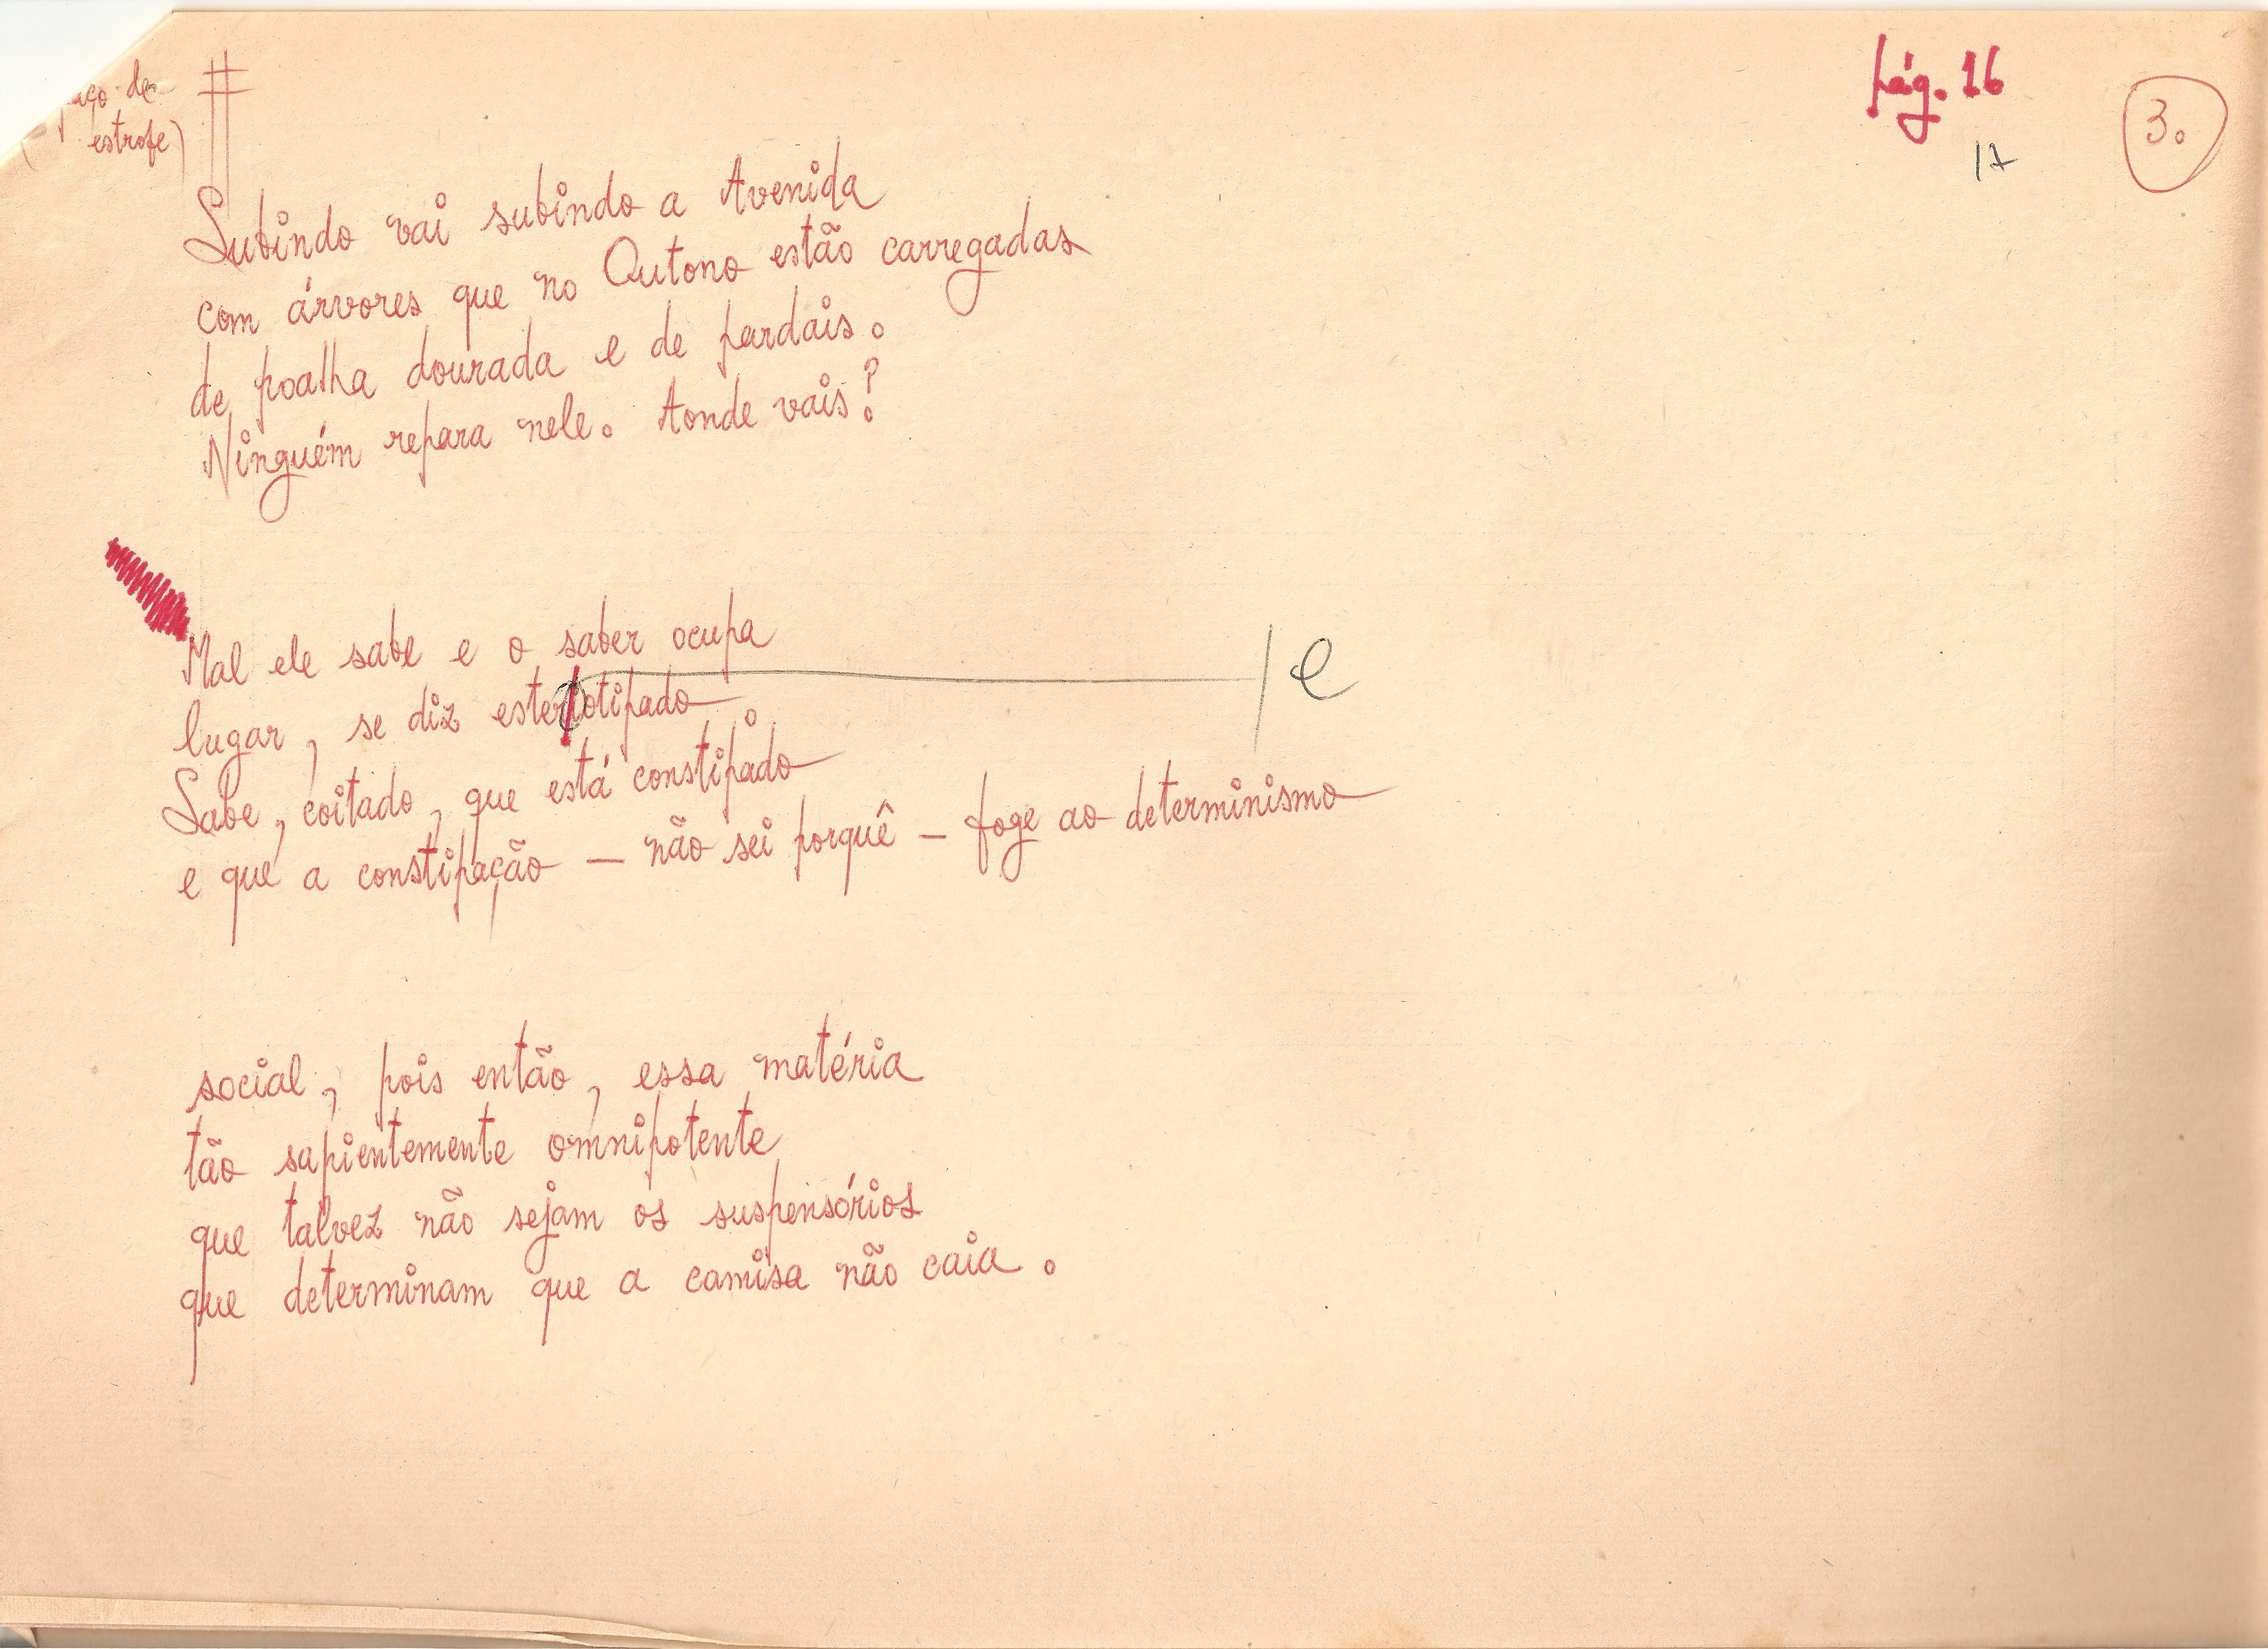 pág. 16
17
3.
de
estrofe)
Subindo vai subindo a Avenida
com árvores que no Outono estão carregadas
de poalha dourada e de pardais.
Ninguém repara nele. Aonde vais?
Mal ele sabe e o saber ocupa
lugar, se diz esteriotipado.
/e
Sabe, coitado, que está constipado
e que a constipação — não sei porquê — foge ao determinismo
social, pois então, essa matéria
tão sapientemente omnipotente
que talvez não sejam os suspensórios
que determinam que a camisa não caia.